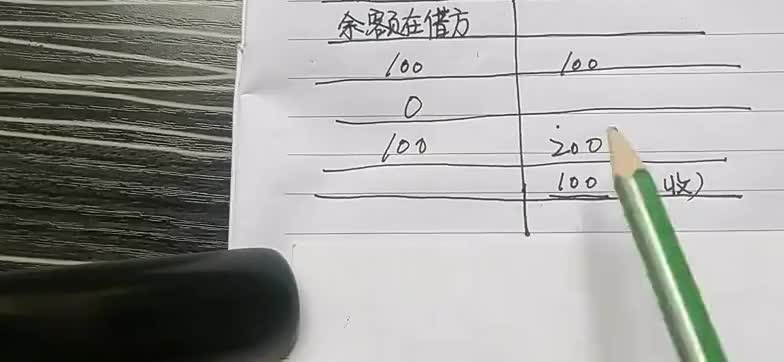 余额在借方
100 100
0
100 200
100 收)